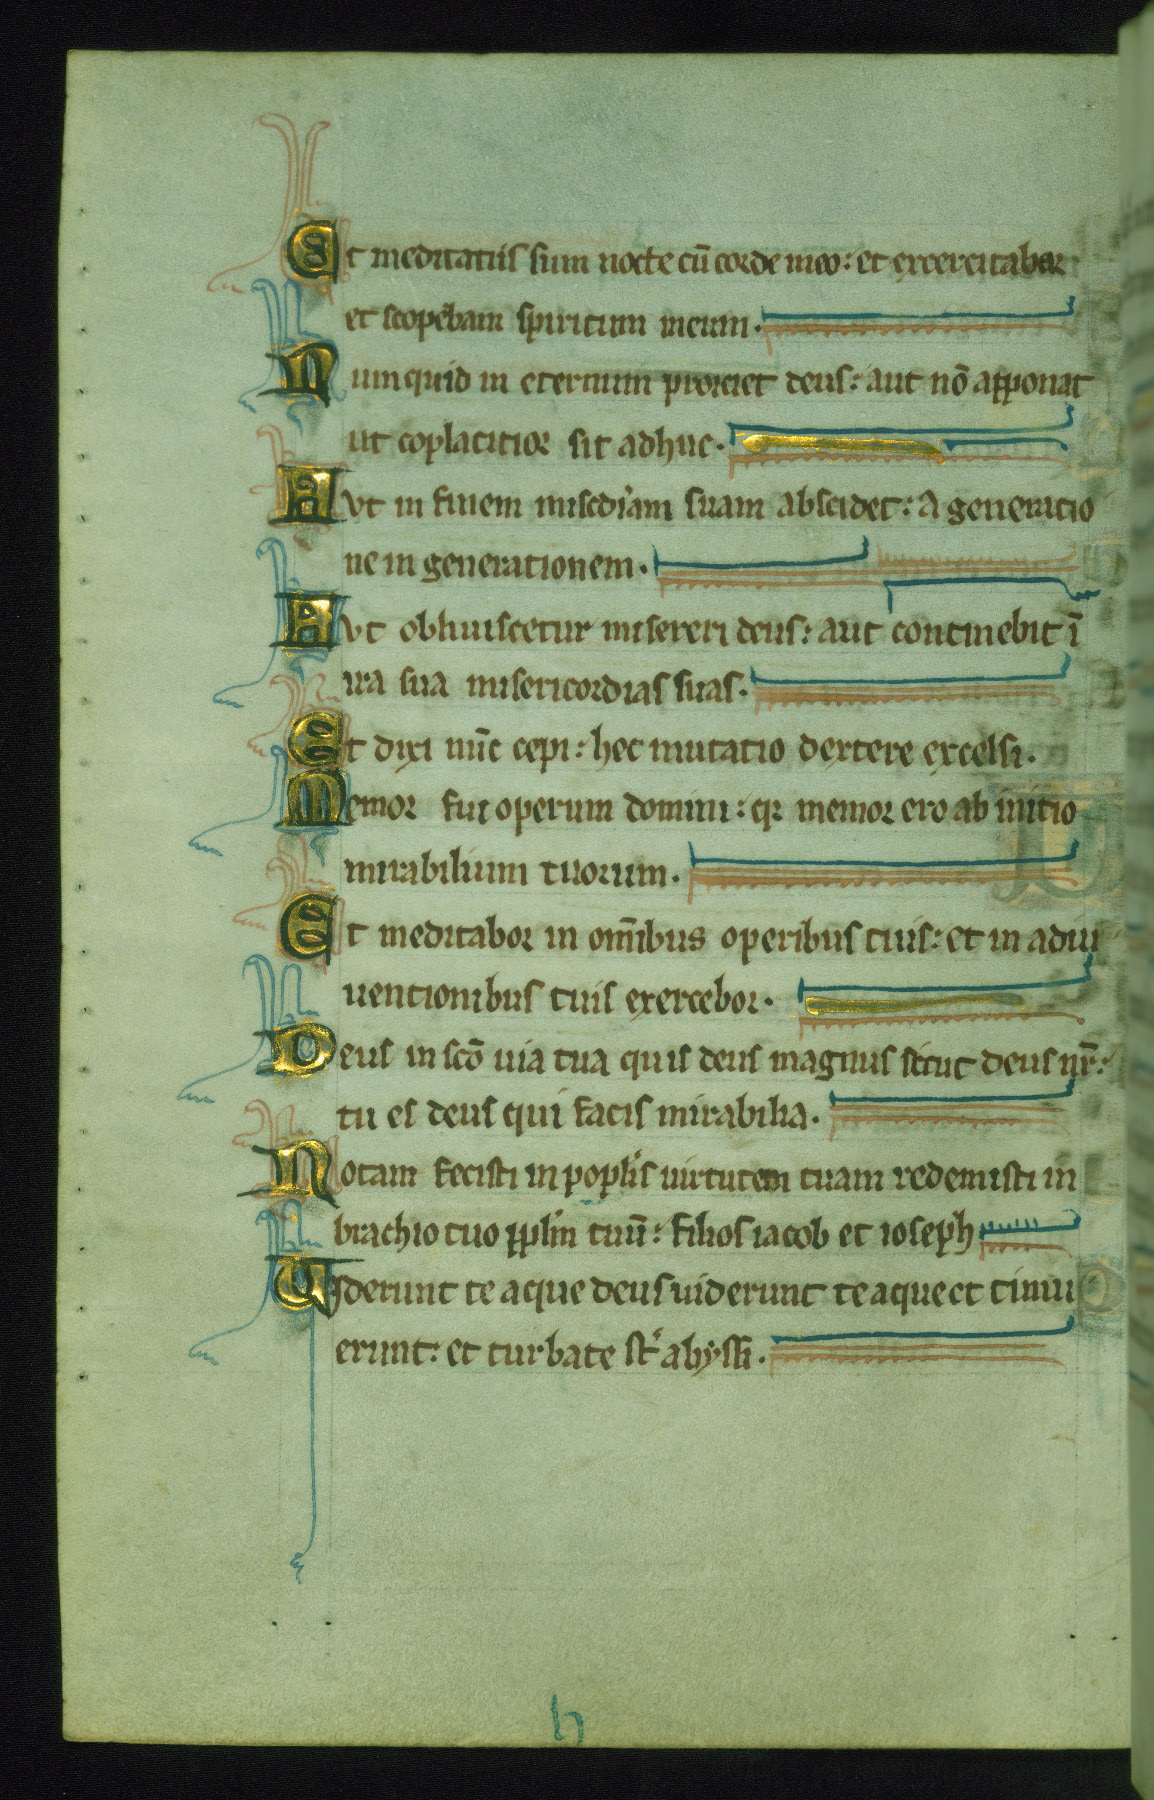 Et meditatus sum nocte cū corde meo: et exercitabar
et scopebam spiritum meum.
Numquid in eternum proiciet deus: aut nō apponat
ut coplacitior sit adhuc.
Aut in finem misc̄diam suam abscidet: a generatio
ne in generationem.
Aut obliuiscetur misereri deus: aut continebit ī
ira sua misericordias suas.
Et dixi nūc cepi: hec mutatio dextere excelsi.
Memor fui operum domini: qr memor ero ab initio
mirabilium tuorum.
Et meditabor in om̄ibus operibus tuis: et in adiu
uentionibus tuis exercebor.
Deus in scō uia tua quis deus magnus sicut deus nr̄:
tu es deus qui facis mirabilia.
Notam fecisti in popl'is uirtutem tuam redemisti in
brachio tuo ppl'm tuū: filios iacob et ioseph
Viderunt te aque deus uiderunt te aque et timu
erunt: et turbate st' abyssi.
h